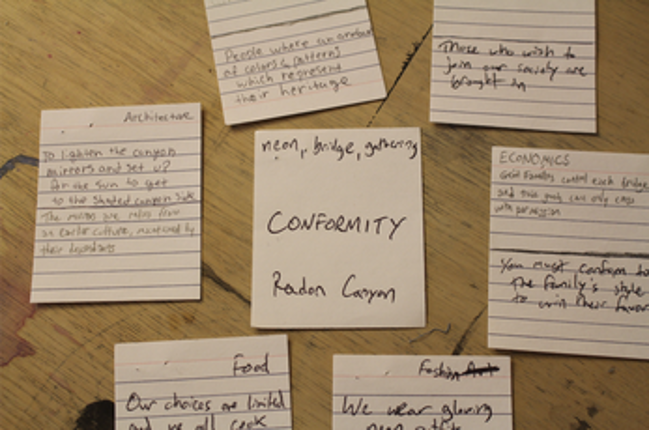 People where an
of colors & patterns
which represent
their heritage
Those who wish to
join our society are
brought in
Architecture
To lighten the canyon
mirrors and set up
for the sun to get
to the shaded canyon side
The mirrors are relics from
an earlier culture, maintained by
their descendants
neon, bridge, gathering
CONFORMITY
Radon Canyon
ECONOMICS
Great Families control each bridge
and goods can only cross
with permission
You must conform to
the family's style
to win their favor
Food
Our choices are limited
and we all cook
Fashion Art
We wear glowing
neon outfits